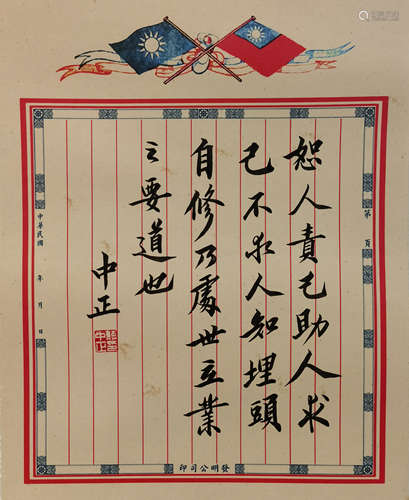 恕人責己助人求
己不求人知埋頭
自修乃處世立業
之要道也
中正
第 頁
中華民國 年 月 日
發明公司印